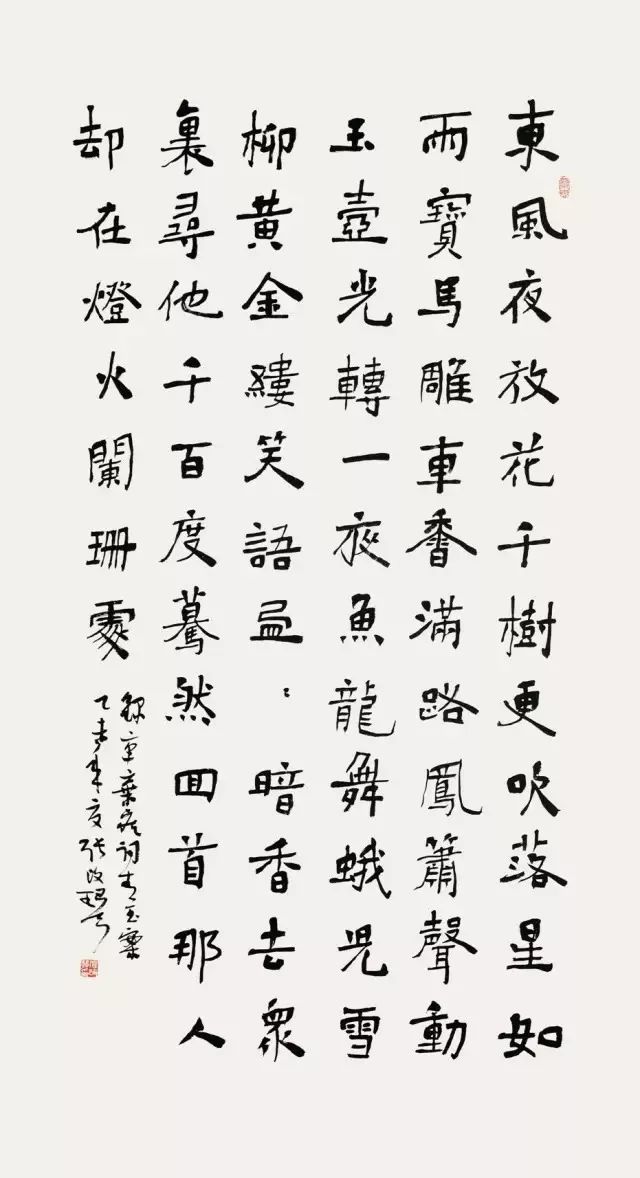 東風夜放花千樹更吹落星如
雨寶馬雕車香滿路鳳簫聲動
玉壺光轉一夜魚龍舞蛾兒雪
柳黃金縷笑語盈〻暗香去眾
裏尋他千百度驀然回首那人
却在燈火闌珊處
錄辛棄疾詞青玉案
乙未年夏張改琴